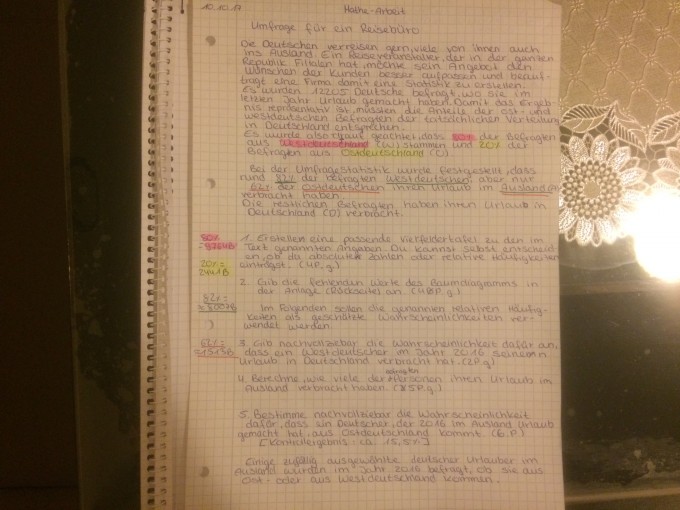 10.10.17 Mathe-Arbeit
Umfrage für ein Reisebüro
Die Deutschen verreisen gern, viele von ihnen auch
ins Ausland. Ein Reiseveranstalter, der in der ganzen
Republik Filialen hat, möchte sein Angebot den
Wünschen der Kunden besser anpassen und beauf-
tragt eine Firma damit eine Statistik zu erstellen.
Es wurden 12205 Deutsche befragt, wo sie im
letzten Jahr Urlaub gemacht haben. Damit das Ergeb-
nis repräsentativ ist, müssten die Anteile der ost- und
westdeutschen Befragten der tatsächlichen Verteilung
in Deutschland entsprechen.
Es wurde also darauf geachtet, dass 80% der Befragten
aus Westdeutschland (W) stammen und 20% der
Befragten aus Ostdeutschland (O)
Bei der Umfragestatistik wurde festgestellt, dass
rund 82% der befragten Westdeutschen, aber nur
62% der Ostdeutschen ihren Urlaub im Ausland
verbracht haben.
Die restlichen Befragten haben ihren Urlaub in
Deutschland (D) verbracht.
80%
= 9764B
20% =
2441B
1. Erstellen eine passende Vierfeldertafel zu den im
Text genannten Angaben. Du kannst selbst entscheid-
en, ob du absolute Zahlen oder relative Häufigkeiten
einträgst. (4P.g.)
2. Gib die fehlenden Werte des Baumdiagramms in
der Anlage (Rückseite) an. (P.g.)
82% =
62% =
Im Folgenden sollen die genannten relativen Häufig-
keiten als geschätzte Wahrscheinlichkeiten ver-
wendet werden.
3. Gib nachvollziehbar die Wahrscheinlichkeit dafür an,
dass ein Westdeutscher im Jahr 2016 seinen
Urlaub in Deutschland verbracht hat. (2P.g)
4. Berechne, wie viele der befragten Personen ihren Urlaub im
Ausland verbracht haben. (5P.g.)
5. Bestimme nachvollziehbar die Wahrscheinlichkeit
dafür, dass ein Deutscher, der 2016 im Ausland Urlaub
gemacht hat, aus Ostdeutschland kommt. (6.P.)
[Kontrollergebnis: ca. 15,5%]
Einige zufällig ausgewählte deutscher Urlauber im
Ausland wurden im Jahr 2016 befragt, ob sie aus
Ost- oder aus Westdeutschland kommen.